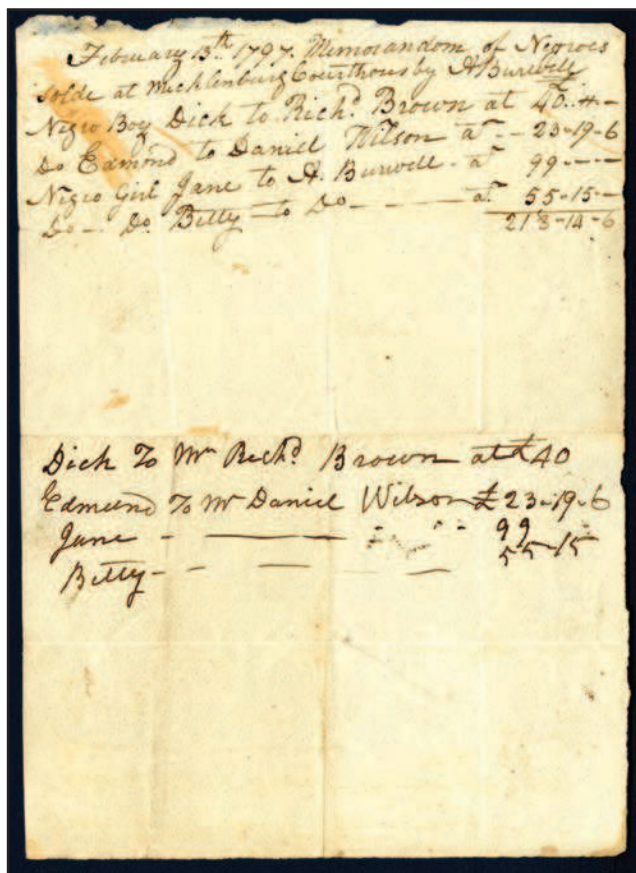 February 13th. 1797. Memorandom of Negroes
solde at Mecklenburg Courthous by A Burwell
Negro Boy Dick to Richd. Brown at 40..
Do Edmond to Daniel Wilson at -- 23-19-6
Negro Girl Jane to A. Burwell - at 99 ----
Do -- Do. Betty - to Do ---- at. 55-15-
218-14-6
Dick To Mr Richd. Brown at £40
Edmund To Mr Daniel Wilson £23-19-6
Jane - —— - - - 99
Betty - - — — — 55-15